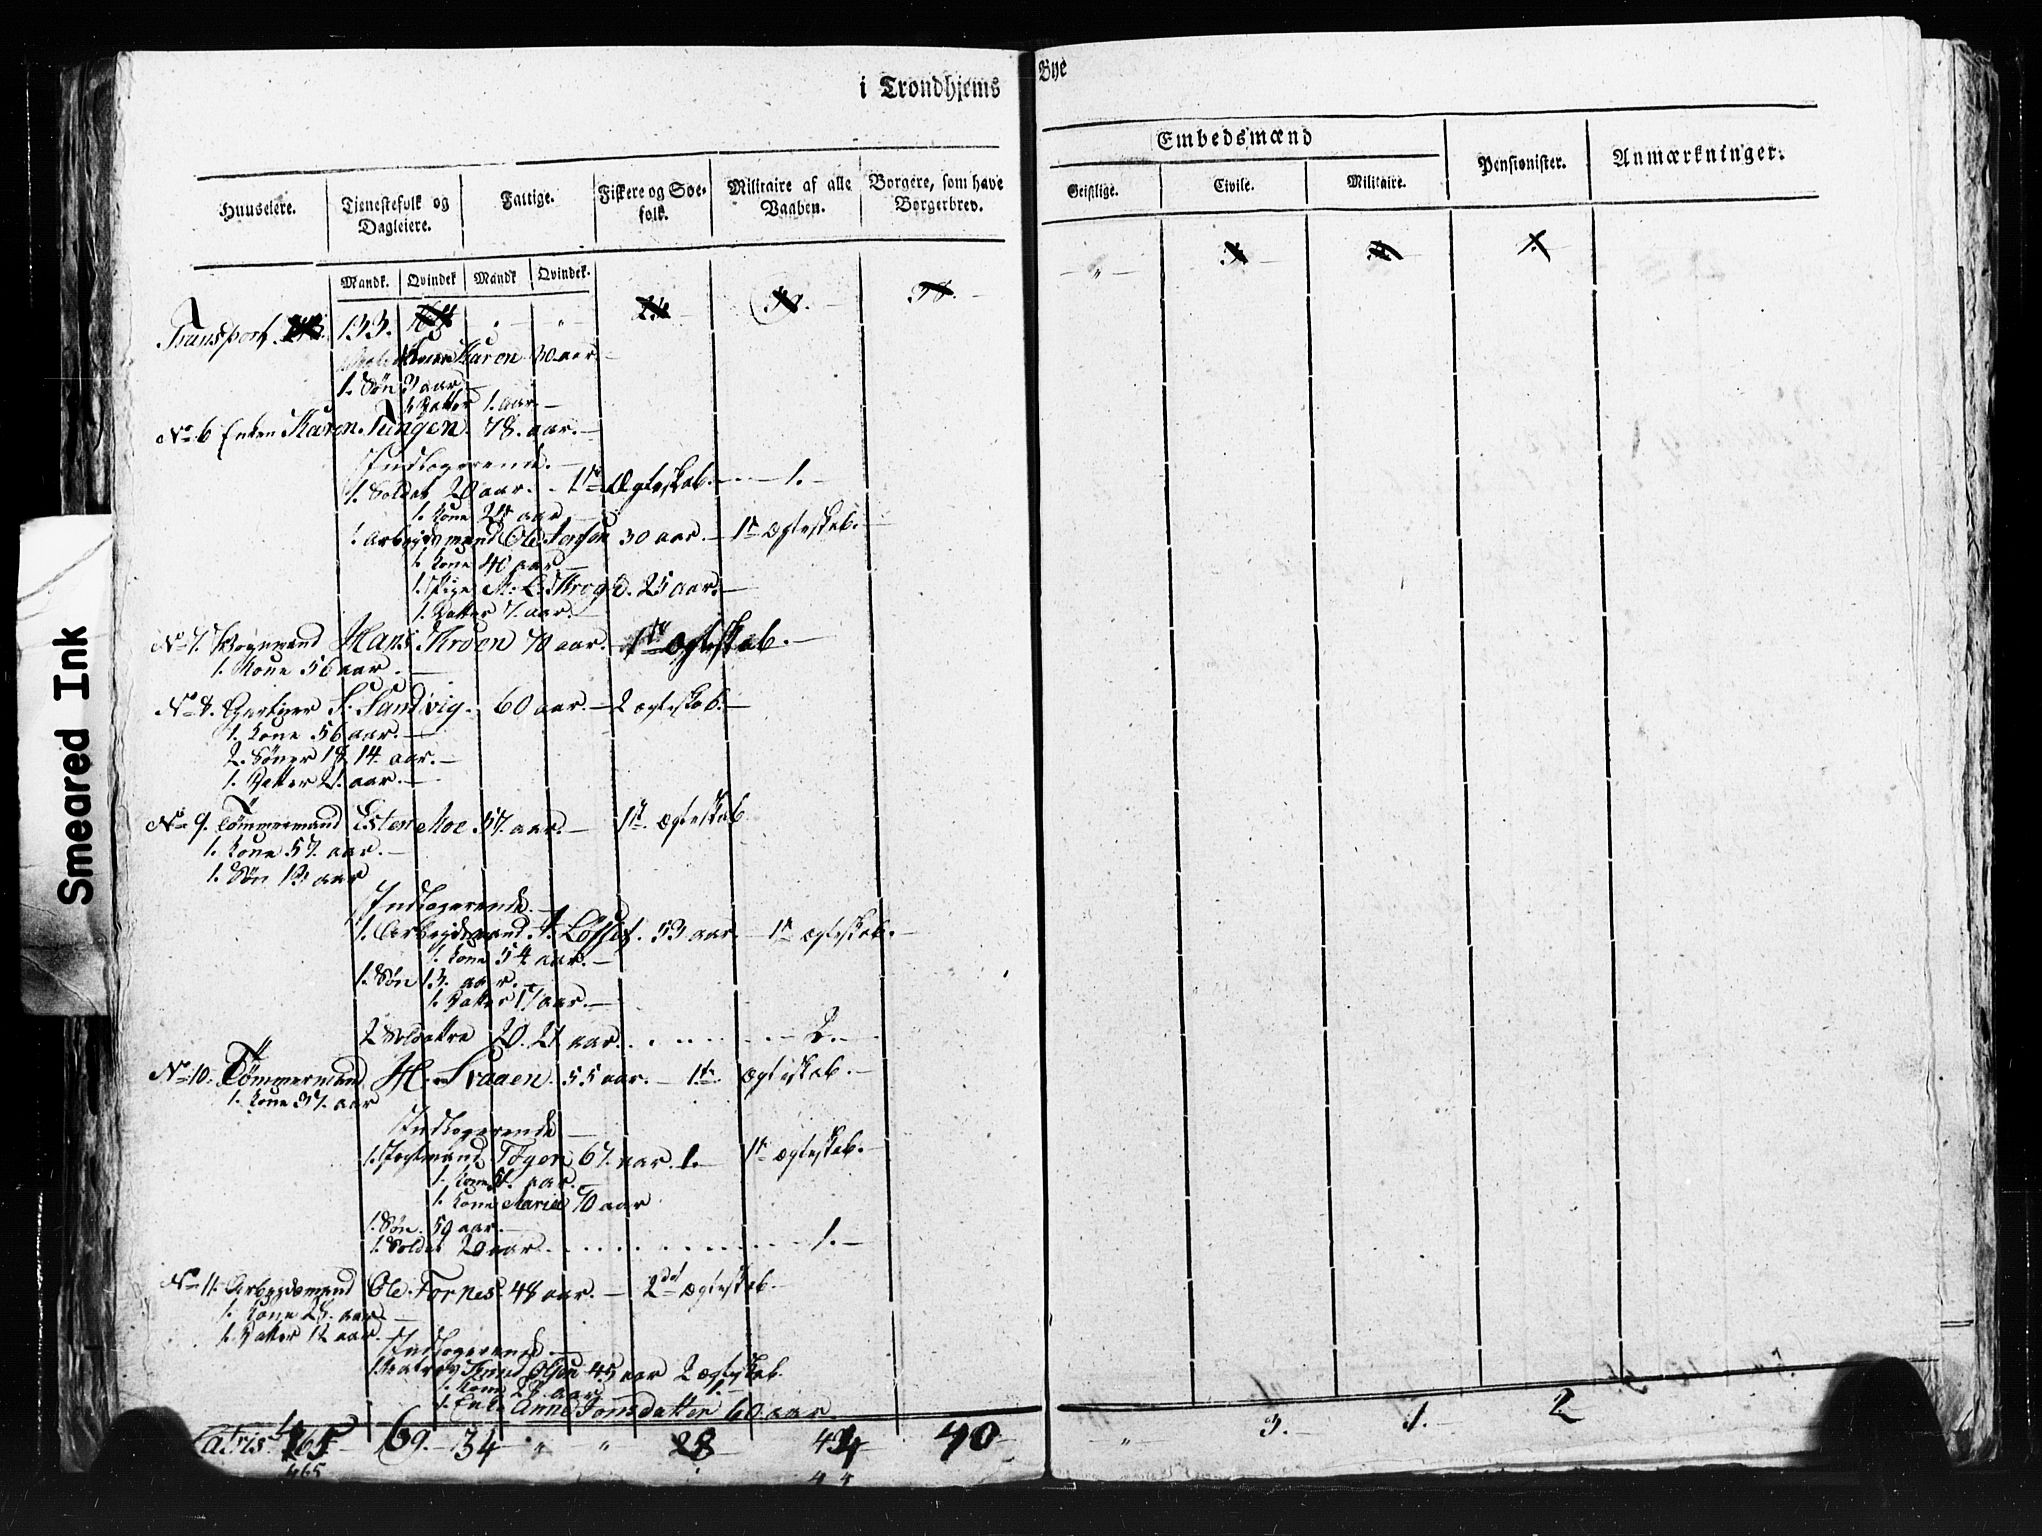 i Trondhjems Bye
Huuseiere. Tienestefolk og Dagleiere. Fattige. Fiskere og Søe-folk. Militaire af alle Vaaben. Borgere, som have Borgerbrev.
Embedsmænd
Geistlige. Civile. Militaire. Pensionister. Anmærkninger.
Mandk. Qvindek Mandk Qvindek.
Transport 133.
Karen 30 aar
1. Søn 3 aar
1 Datter 1. aar.
No 6 Enken Karen Tungen. 78. aar.
Indlogerende.
1. Soldat 20 aar. 1ste Ægteskab. 1.
1. Kone 24 aar
1. Arbeydsmand Ole 30 aar. 1te Ægteskab.
1. Kone 40 aar
1. Pige 25 aar.
1. Datter 7. aar.
No 7. Vognmand Hans Kroen 70 aar. 1te Ægteskab.
1. Kone 56 aar
No 8. Gartner S. Sandvig. 60 aar. 2 Ægteskab.
1. Kone 56 aar.
2. Sønner 18 14. aar.
1. Datter 21. aar.
No 9. Tømmermand Esten Moe 57. aar. 1te Ægteskab
1. Kone 57. aar.
1. Søn 13 aar
Indlogerende.
1. Arbeydsmand 53 aar. 1te Ægteskab.
1. Kone 54 aar.
1. Søn 13. aar.
1. Datter 17 aar.
2 Soldattre 20. 21 aar. 2.
No 10. Tømmermand H. Svaaen. 55 aar. 1te Ægteskab.
1. Kone 37. aar
Indlogerende
67. aar. 1. 1te Ægteskab.
1. Kone aar.
1. Kone Marie 70 aar
1. Søn. 50 aar.
1. Soldat 20 aar 1.
No 11. Arbeydsmand Ole Fornes. 48 aar. 2det Ægteskab
1. Kone 28. aar
1. Datter 12 aar.
Indlogerende
1. Matros Knud Olsen 45 aar 2 Ægteskab.
1. Kone 28 aar 1.
1. Enke Anne Jonsdatter 60 aar.
Latris 69. 34 28 44 40 3. 1. 2
465 44
Smeared Ink